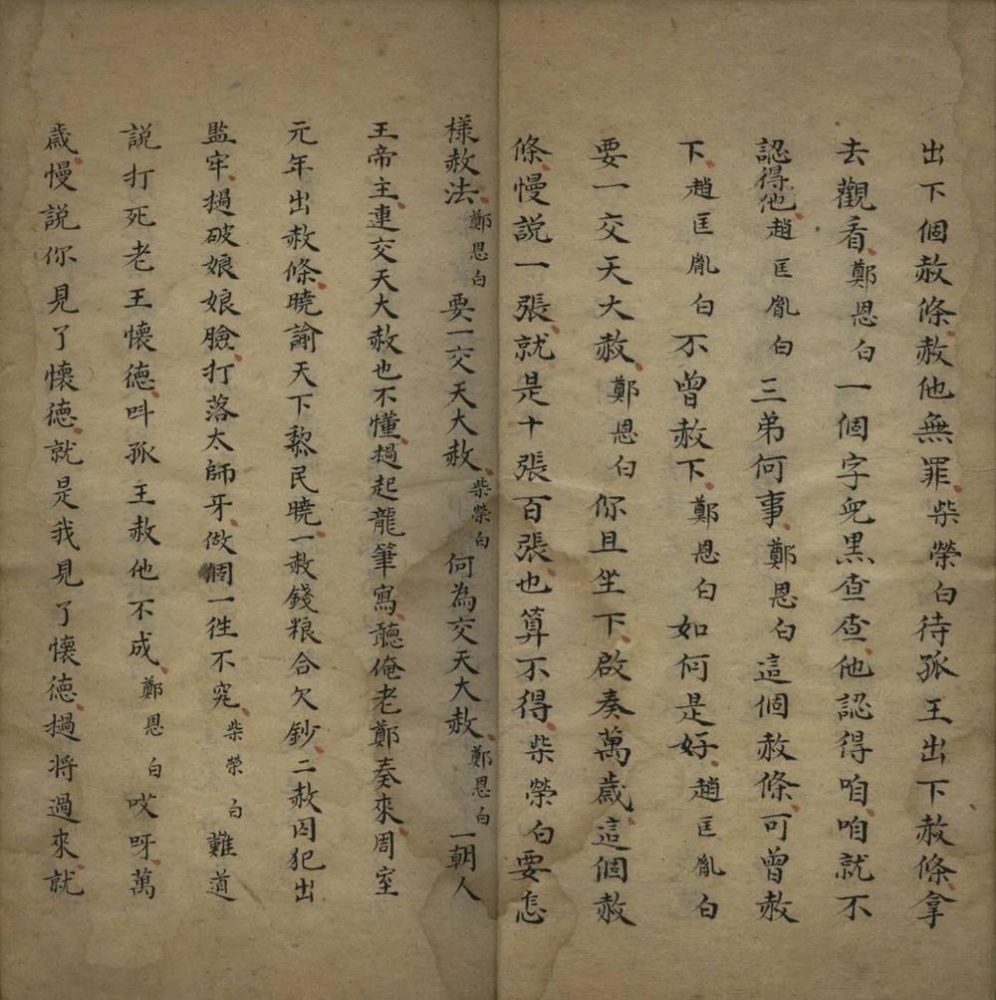 出下個赦條赦他無罪柴榮白待孤王出下赦條拿
去觀看鄭恩白一個字兒黑查查他認得咱咱就不
認得他趙匡胤白三弟何事鄭恩白這個赦條可曾赦
下趙匡胤白不曾赦下鄭恩白如何是好趙匡胤白
要一交天大赦鄭恩白你且坐下啟奏萬歲這個赦
條慢説一張就是十張百張也算不得柴榮白要怎
樣赦法鄭恩白要一交天大赦柴榮白何為交天大赦鄭恩白一朝人
王帝主連交天大赦也不懂撾起龍筆寫聽俺老鄭奏來周室
元年出赦條曉諭天下黎民曉一赦錢粮合欠鈔二赦囚犯出
監牢撾破娘娘臉打落太師牙做個一徃不究柴榮白難道
説打死老王懷德呌孤王赦他不成鄭恩白哎呀萬
歲慢説你見了懷德就是我見了懷德撾將過來就